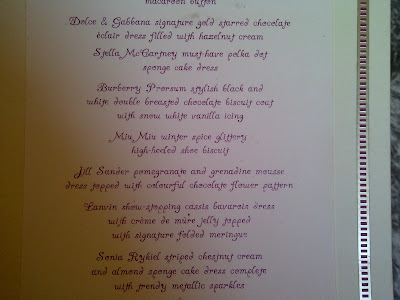 macaroon button
Dolce & Gabbana signature gold starred chocolate
éclair dress filled with hazelnut cream
Stella McCartney must-have polka dot
sponge cake dress
Burberry Prorsum stylish black and
white double breasted chocolate biscuit coat
with snow white vanilla icing
Miu Miu winter spice glittery
high-heeled shoe biscuit
Jill Sander pomegranate and grenadine mousse
dress topped with colourful chocolate flower pattern
Lanvin show-stopping cassis bavarois dress
with crème de mûre jelly topped
with signature folded meringue
Sonia Rykiel striped chestnut cream
and almond sponge cake dress complete
with trendy metallic sparkles